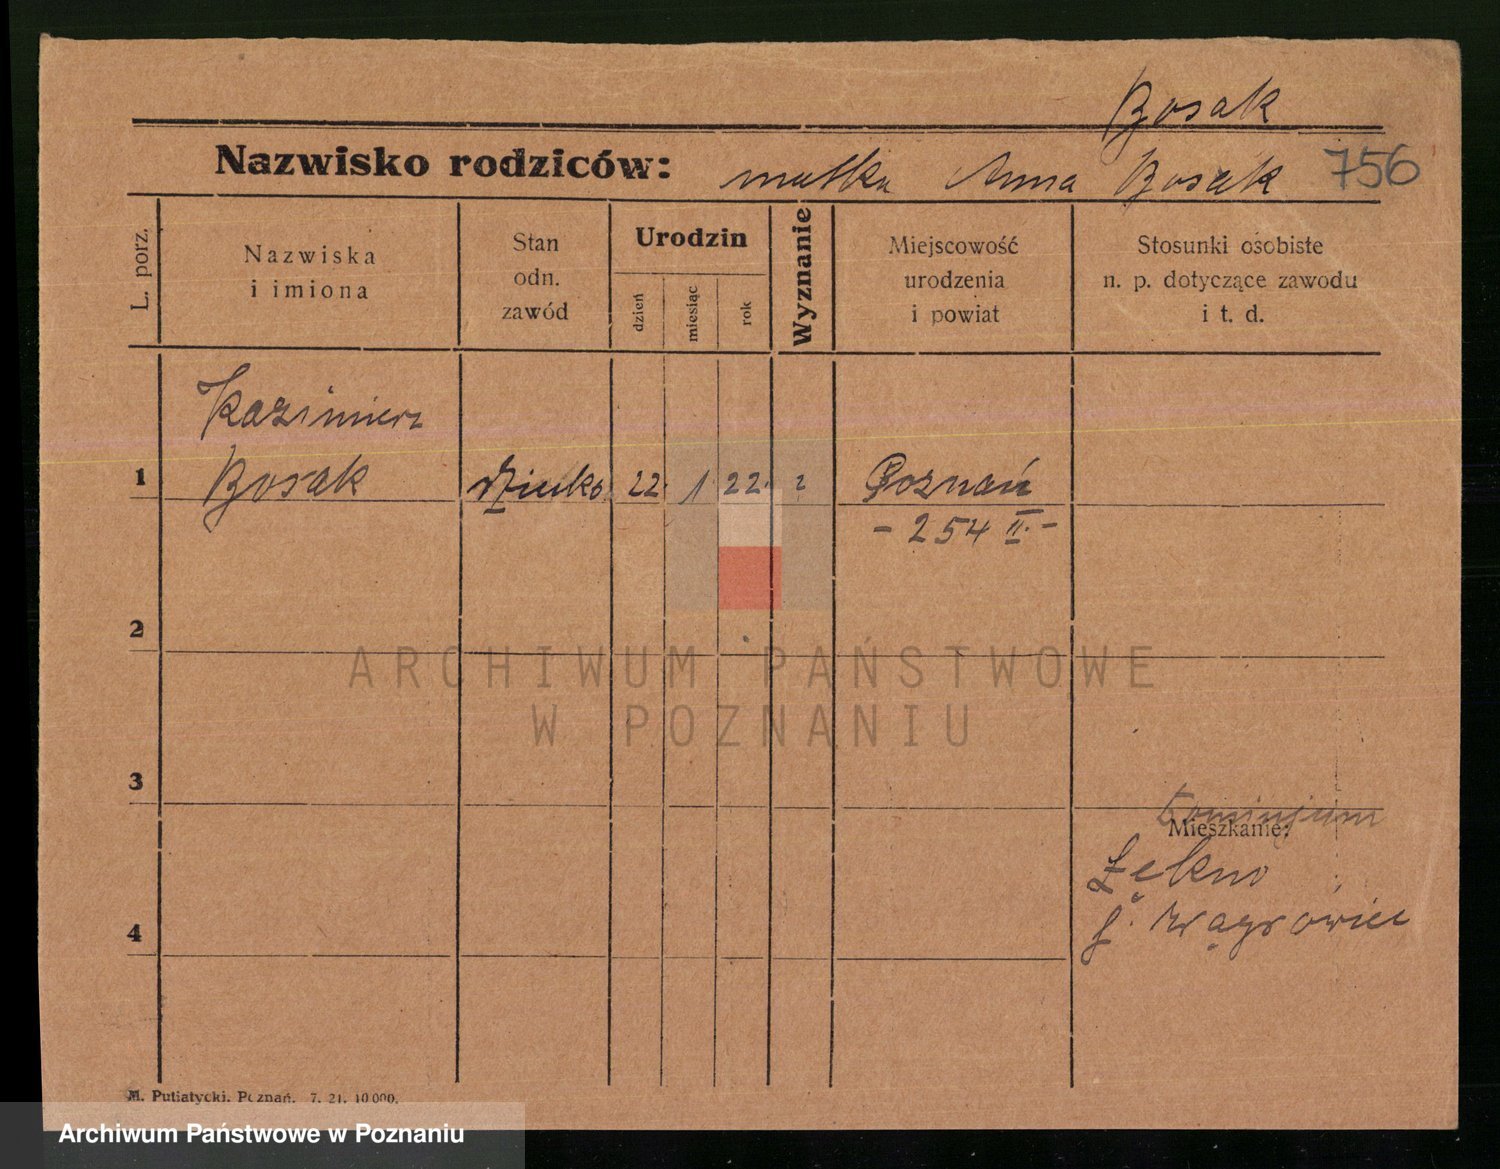 Bosak
Nazwisko rodziców: matka Anna Bosak 756
L. porz.
Nazwiska
i imiona
Stan
odn.
zawód
Urodzin
dzień
miesiąc
rok
Wyznanie
Miejscowość
urodzenia
i powiat
Stosunki osobiste
n. p. dotyczące zawodu
i t. d.
Kazimierz
1 Bosak dziecko 22. 1 22. ? Poznań
- 254 II. -
2
ARCHIWUM PAŃSTWOWE
W POZNANIU
3
Mieszkanie:
Łękno
4 p. Wągrówiec
M. Putiatycki, Poznań. 7. 21. 10.000.
Archiwum Państwowe w Poznaniu